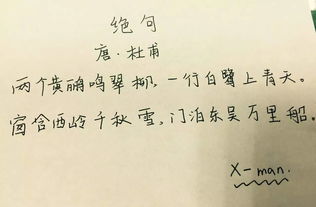 绝句
唐·杜甫
两个黄鹂鸣翠柳,一行白鹭上青天。
窗含西岭千秋雪,门泊东吴万里船。
X-man.